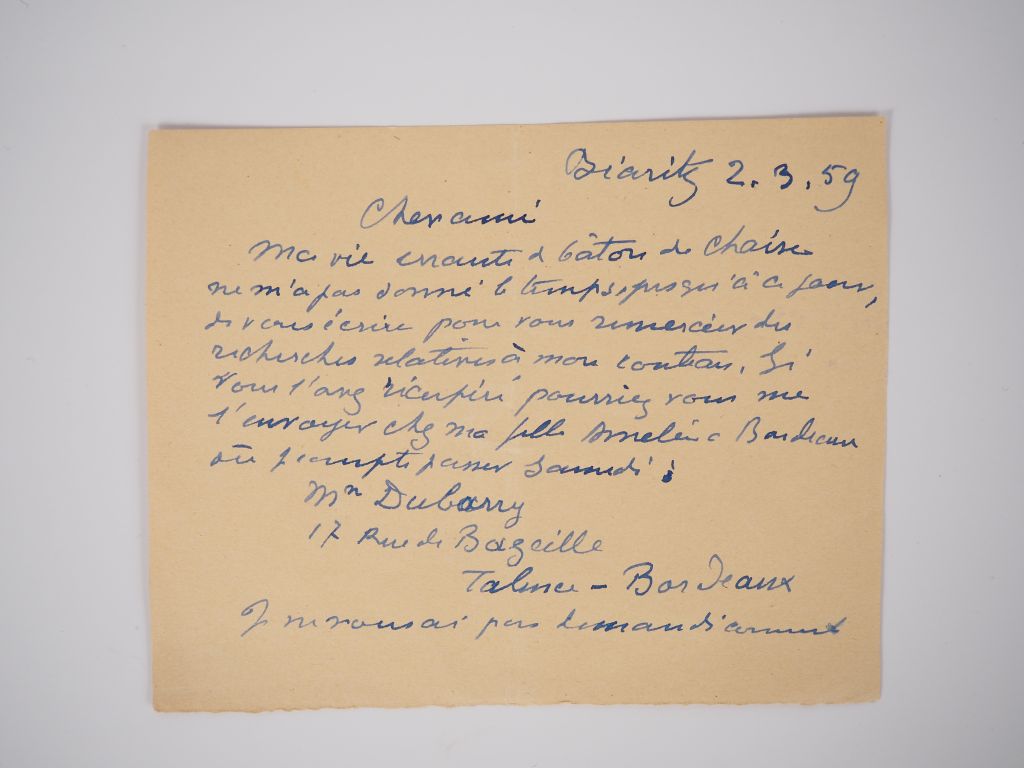 Biaritz 2.3.59
Cher ami
Ma vie errante d bâton de chaise
ne m'a pas donné le temps, jusqu'à ce jour,
de vous écrire pour vous remercier des
recherches relatives à mon couteau. Si
vous l'avez récupéré pourriez vous me
l'envoyer chez ma fille à Bordeaux
où je compte passer Samedi :
Mr Dubarry
17 Rue de Bazeille
Talence - Bordeaux
Je ne vous ai pas demandé comment